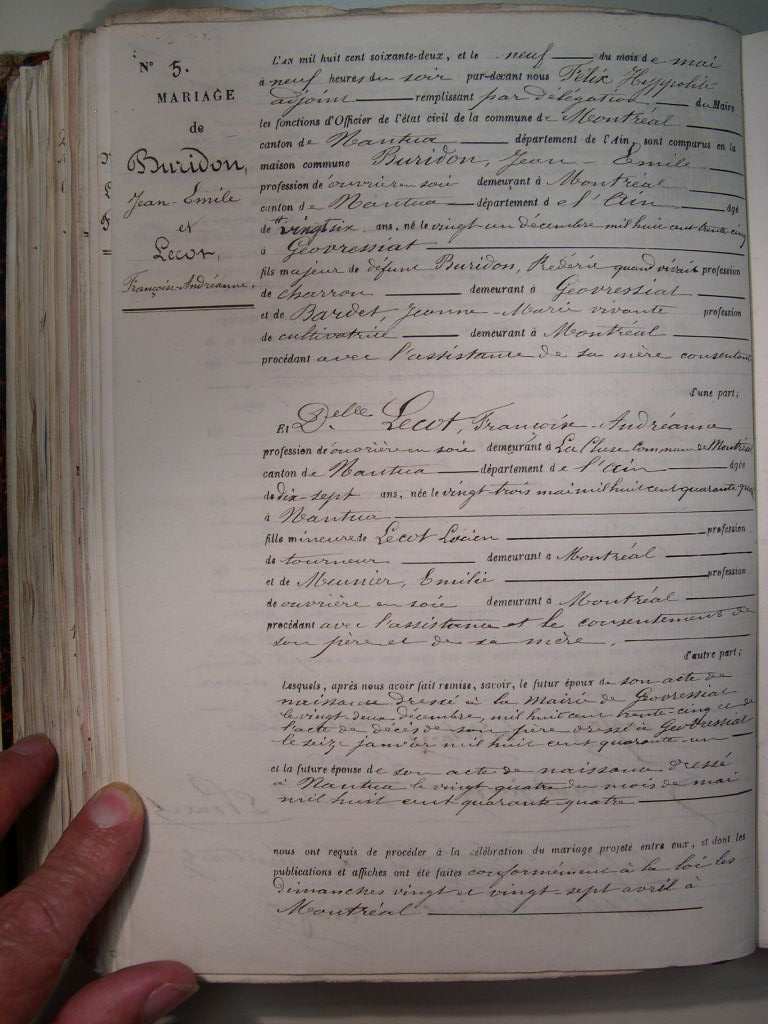 N° 5.
MARIAGE
de
Buridon,
Jean-Émile
et
Lecot,
Françoise-Andréanne.
L'AN mil huit cent soixante-deux, et le neuf du mois de mai
à neuf heures du soir par-devant nous Félix Hyppolite
adjoint remplissant par délégation du Maire
les fonctions d'Officier de l'état civil de la commune de Montréal
canton de Nantua département de l'Ain, sont comparus en la
maison commune Buridon, Jean-Émile
profession de ouvrière en soie demeurant à Montréal
canton de Nantua département de l'Ain âgé
de vingt six ans, né le vingt un décembre mil huit cent trente cinq
à Géovressiat
fils majeur de défunt Buridon, quand vivait profession
de charron demeurant à Géovressiat
et de Bardet, Jeanne-Marie vivante profession
de cultivatrice demeurant à Montréal
procédant avec l'assistance de sa mère consentant
d'une part;
Et Delle Lecot, Françoise-Andréanne
profession de ouvrière en soie demeurant à La Cluse Commune de Montréal
canton de Nantua département de l'Ain âgée
de dix-sept ans, née le vingt trois mai mil huit cent quarante quatre
à Nantua
fille mineure de Lecot Lucien profession
de tourneur demeurant à Montréal
et de Meunier, Emilie profession
de ouvrière en soie demeurant à Montréal
procédant avec l'assistance et le consentement de
son père et de sa mère.
d'autre part;
Lesquels, après nous avoir fait remise, savoir, le futur époux de son acte de
naissance dressé à la mairie de Géovressiat
le vingt deux décembre, mil huit cent trente cinq et de
l'acte de décès de son père dressé à Géovressiat
le seize janvier mil huit cent quarante un
et la future épouse de son acte de naissance dressé
à Nantua le vingt quatre du mois de mai
mil huit cent quarante quatre
nous ont requis de procéder à la célébration du mariage projeté entre eux, et dont les
publications et affiches ont été faites conformément à la loi les
dimanches vingt et vingt-sept avril à
Montréal